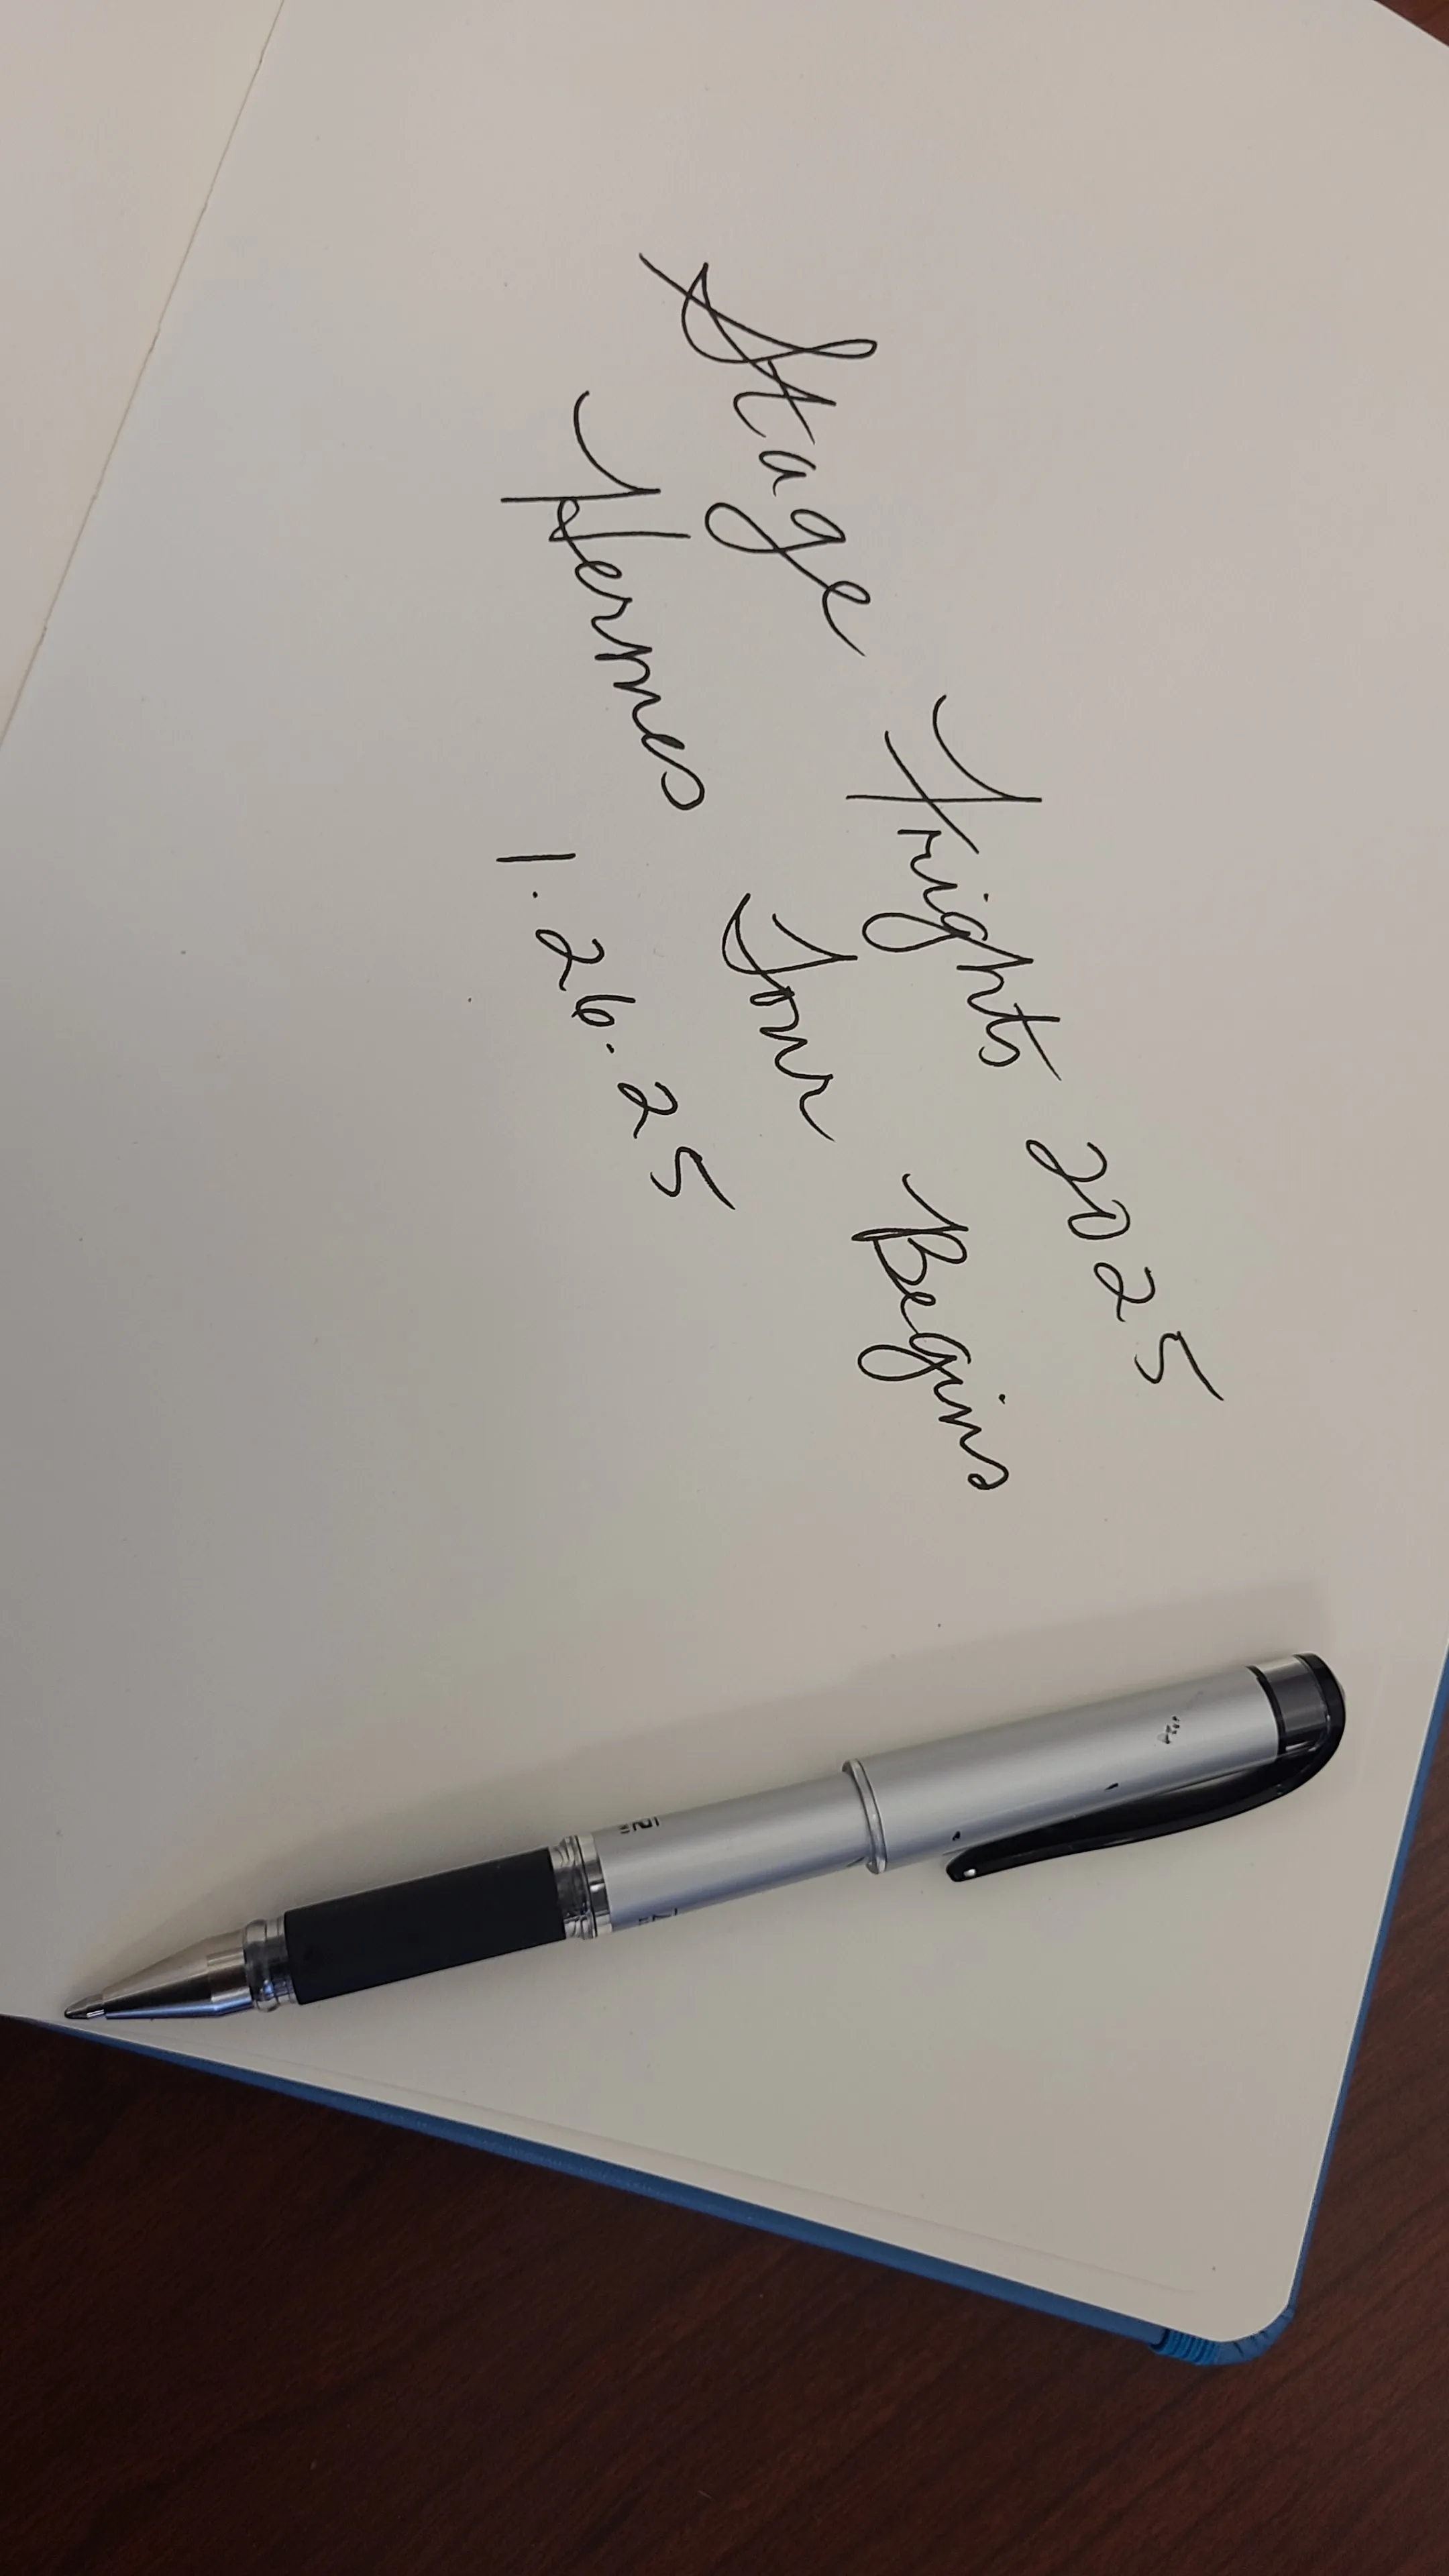 Stage Frights 2025
Hermes Tour Begins
1.26.25